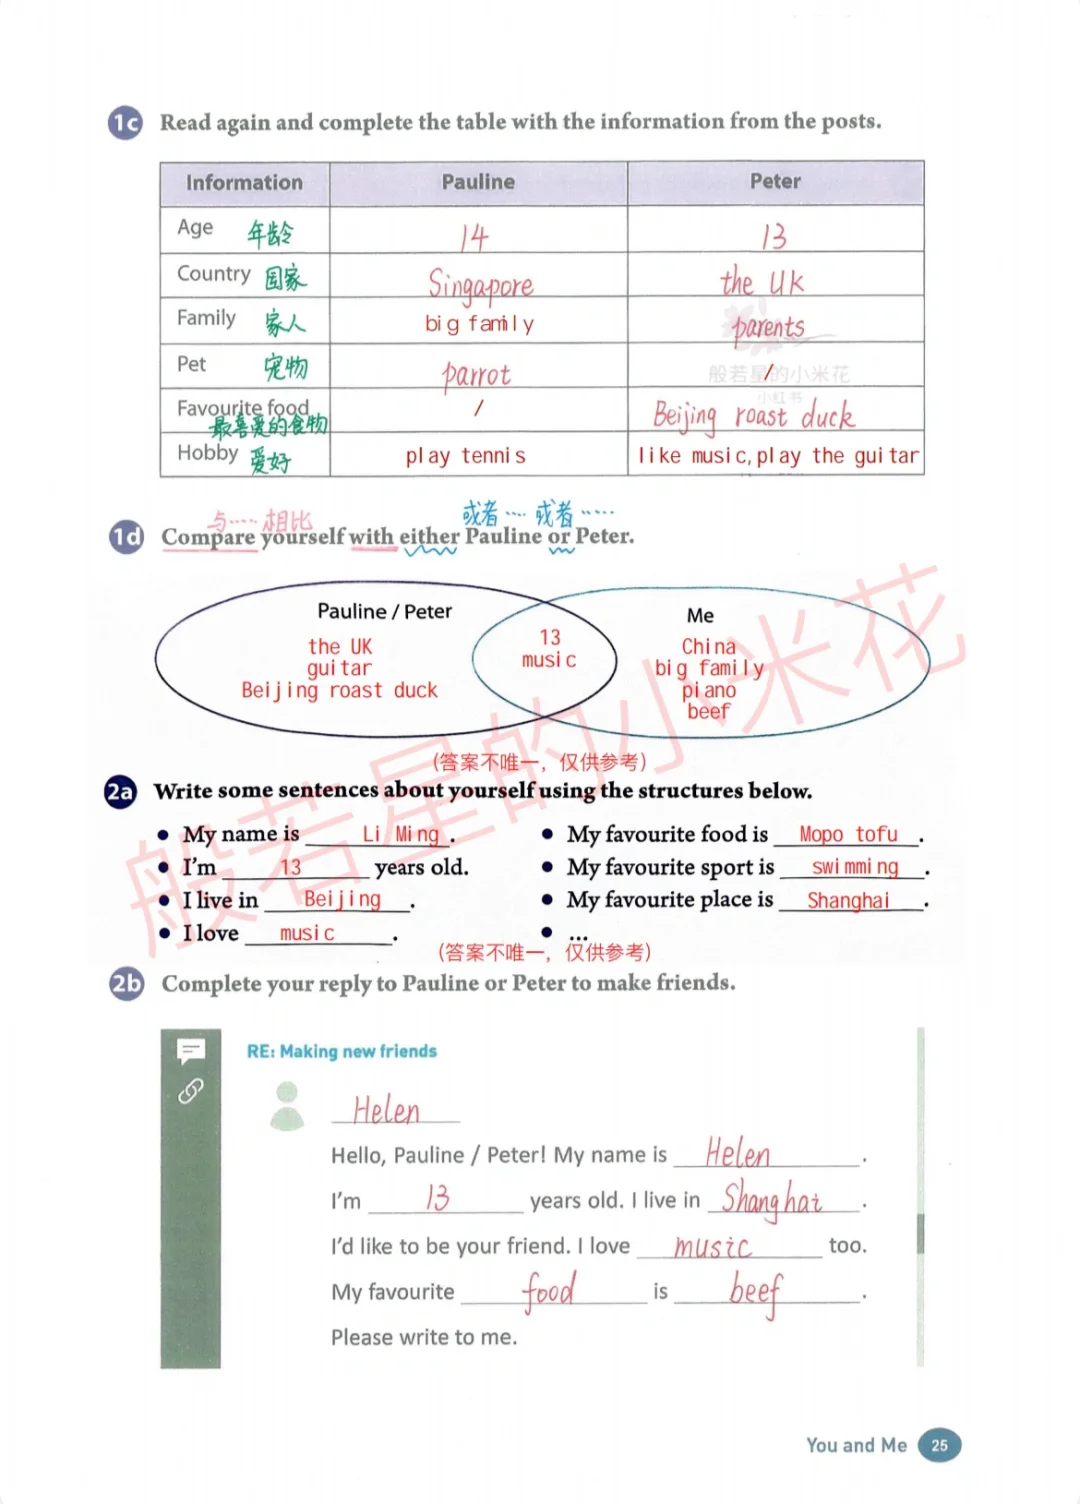 1c Read again and complete the table with the information from the posts.
Information Pauline Peter
Age 年龄 14 13
Country 国家 Singapore the UK
Family 家人 big family parents
Pet 宠物 parrot /
般若星的小米花
小红书
Favourite food 最喜爱的食物 / Beijing roast duck
Hobby 爱好 play tennis like music,play the guitar
与……相比 或者…… 或者……
1d Compare yourself with either Pauline or Peter.
Pauline / Peter
the UK
guitar
Beijing roast duck
13
music
Me
China
big family
piano
beef
般若星的小米花
(答案不唯一，仅供参考)
2a Write some sentences about yourself using the structures below.
• My name is Li Ming .
• I'm 13 years old.
• I live in Beijing .
• I love music .
• My favourite food is Mopo tofu .
• My favourite sport is swimming .
• My favourite place is Shanghai .
• ...
(答案不唯一，仅供参考)
2b Complete your reply to Pauline or Peter to make friends.
RE: Making new friends
Helen
Hello, Pauline / Peter! My name is Helen .
I'm 13 years old. I live in Shanghai .
I'd like to be your friend. I love music too.
My favourite food is beef .
Please write to me.
You and Me 25